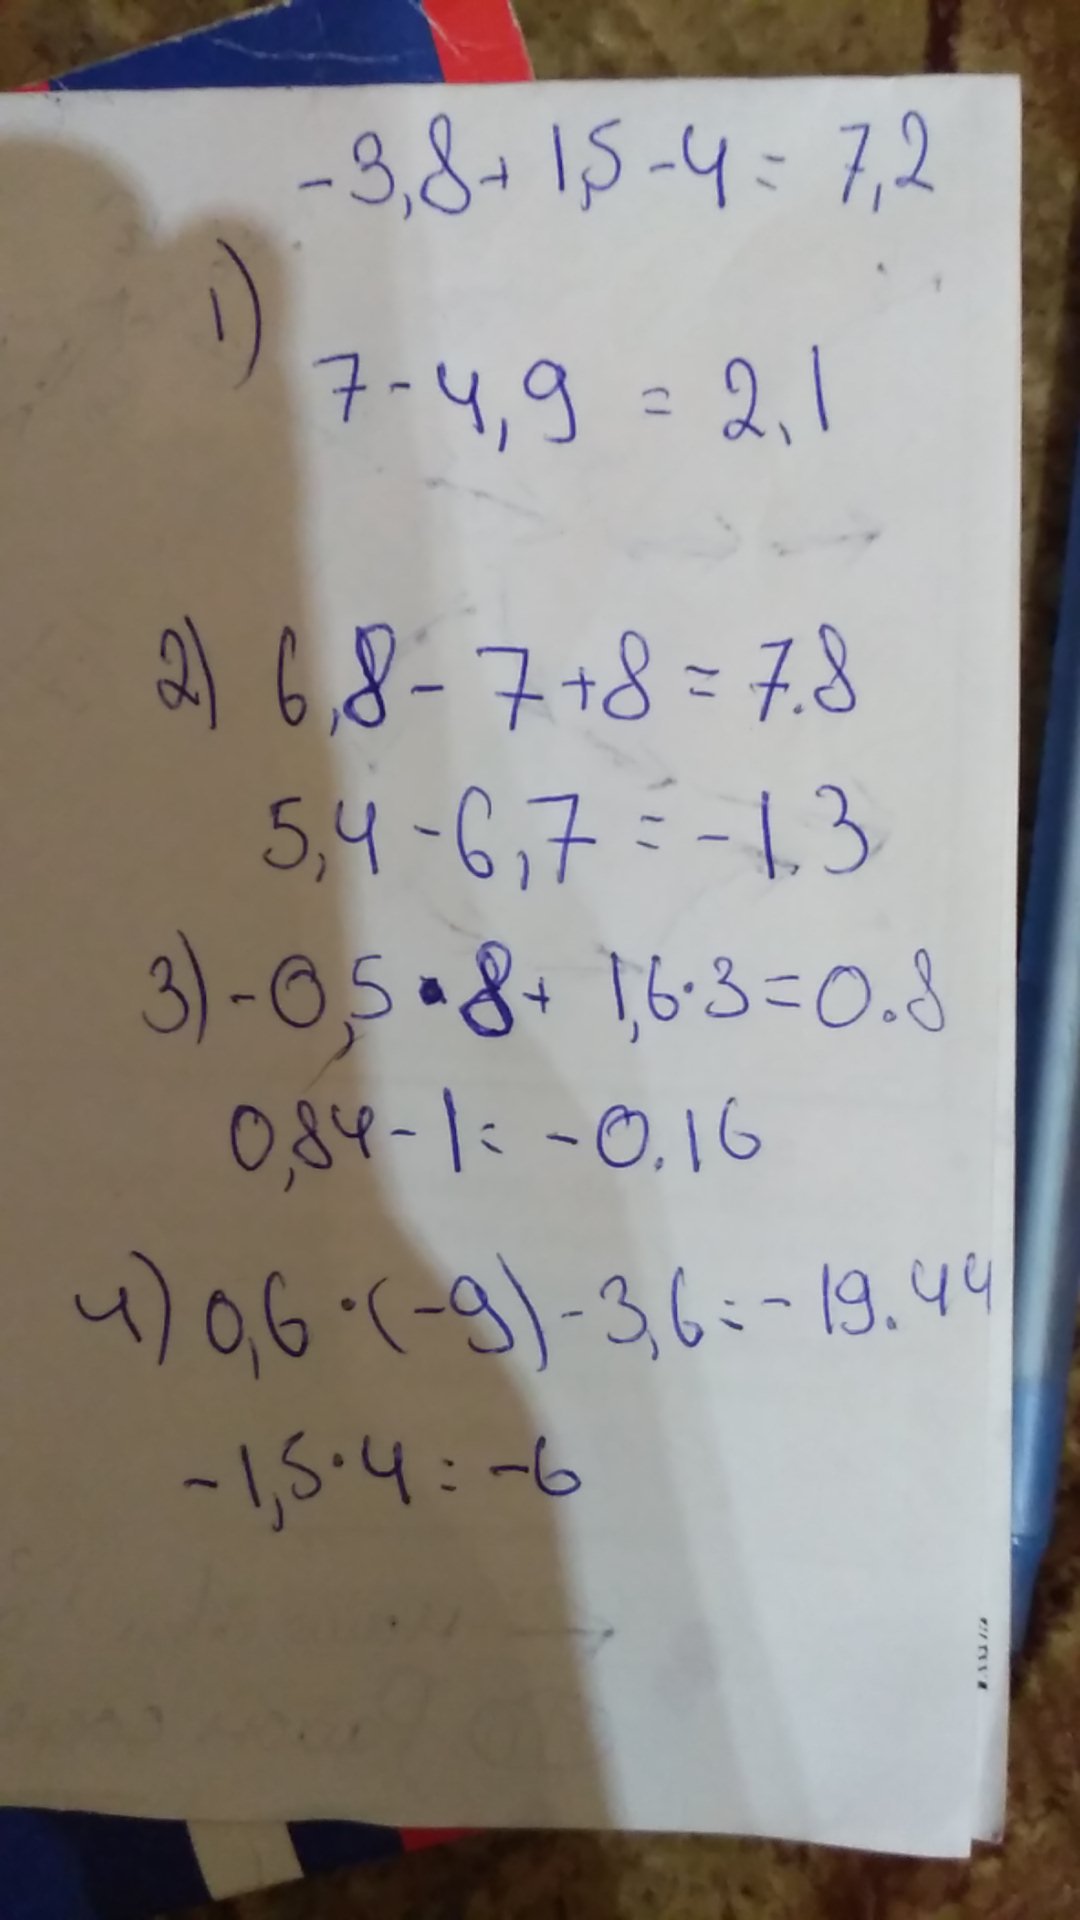 -3,8+ 1,5-4= 7,2
1)
7-4,9 = 2,1
2) 6,8- 7+8=7.8
5,4-6,7=-1.3
3)-0,5•8+ 1,6·3=0.8
0,84-1= -0.16
4)0,6·(-9)-3,6=-19.44
-1,5·4=-6